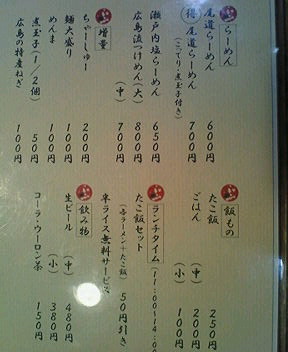 らーめん
尾道らーめん 600
得尾道らーめん 700
(こってり・煮玉子付き)
瀬戸内塩らーめん 650
広島流つけめん(大) 800
(中) 700
増量
ちゃーしゅー 200
麺大盛り 100
めんま 100
煮玉子(1/2個) 50円
広島の特産ねぎ 100円
飯もの
たこ飯 250
ごはん (中) 200
(小) 100
ランチタイム(11:00~14:00
たこ飯セット
(各ラーメン+たこ飯) 50円引き
半ライス無料サービス
飲み物
生ビール (中) 480
(小) 380円
コーラ・ウーロン茶 150円